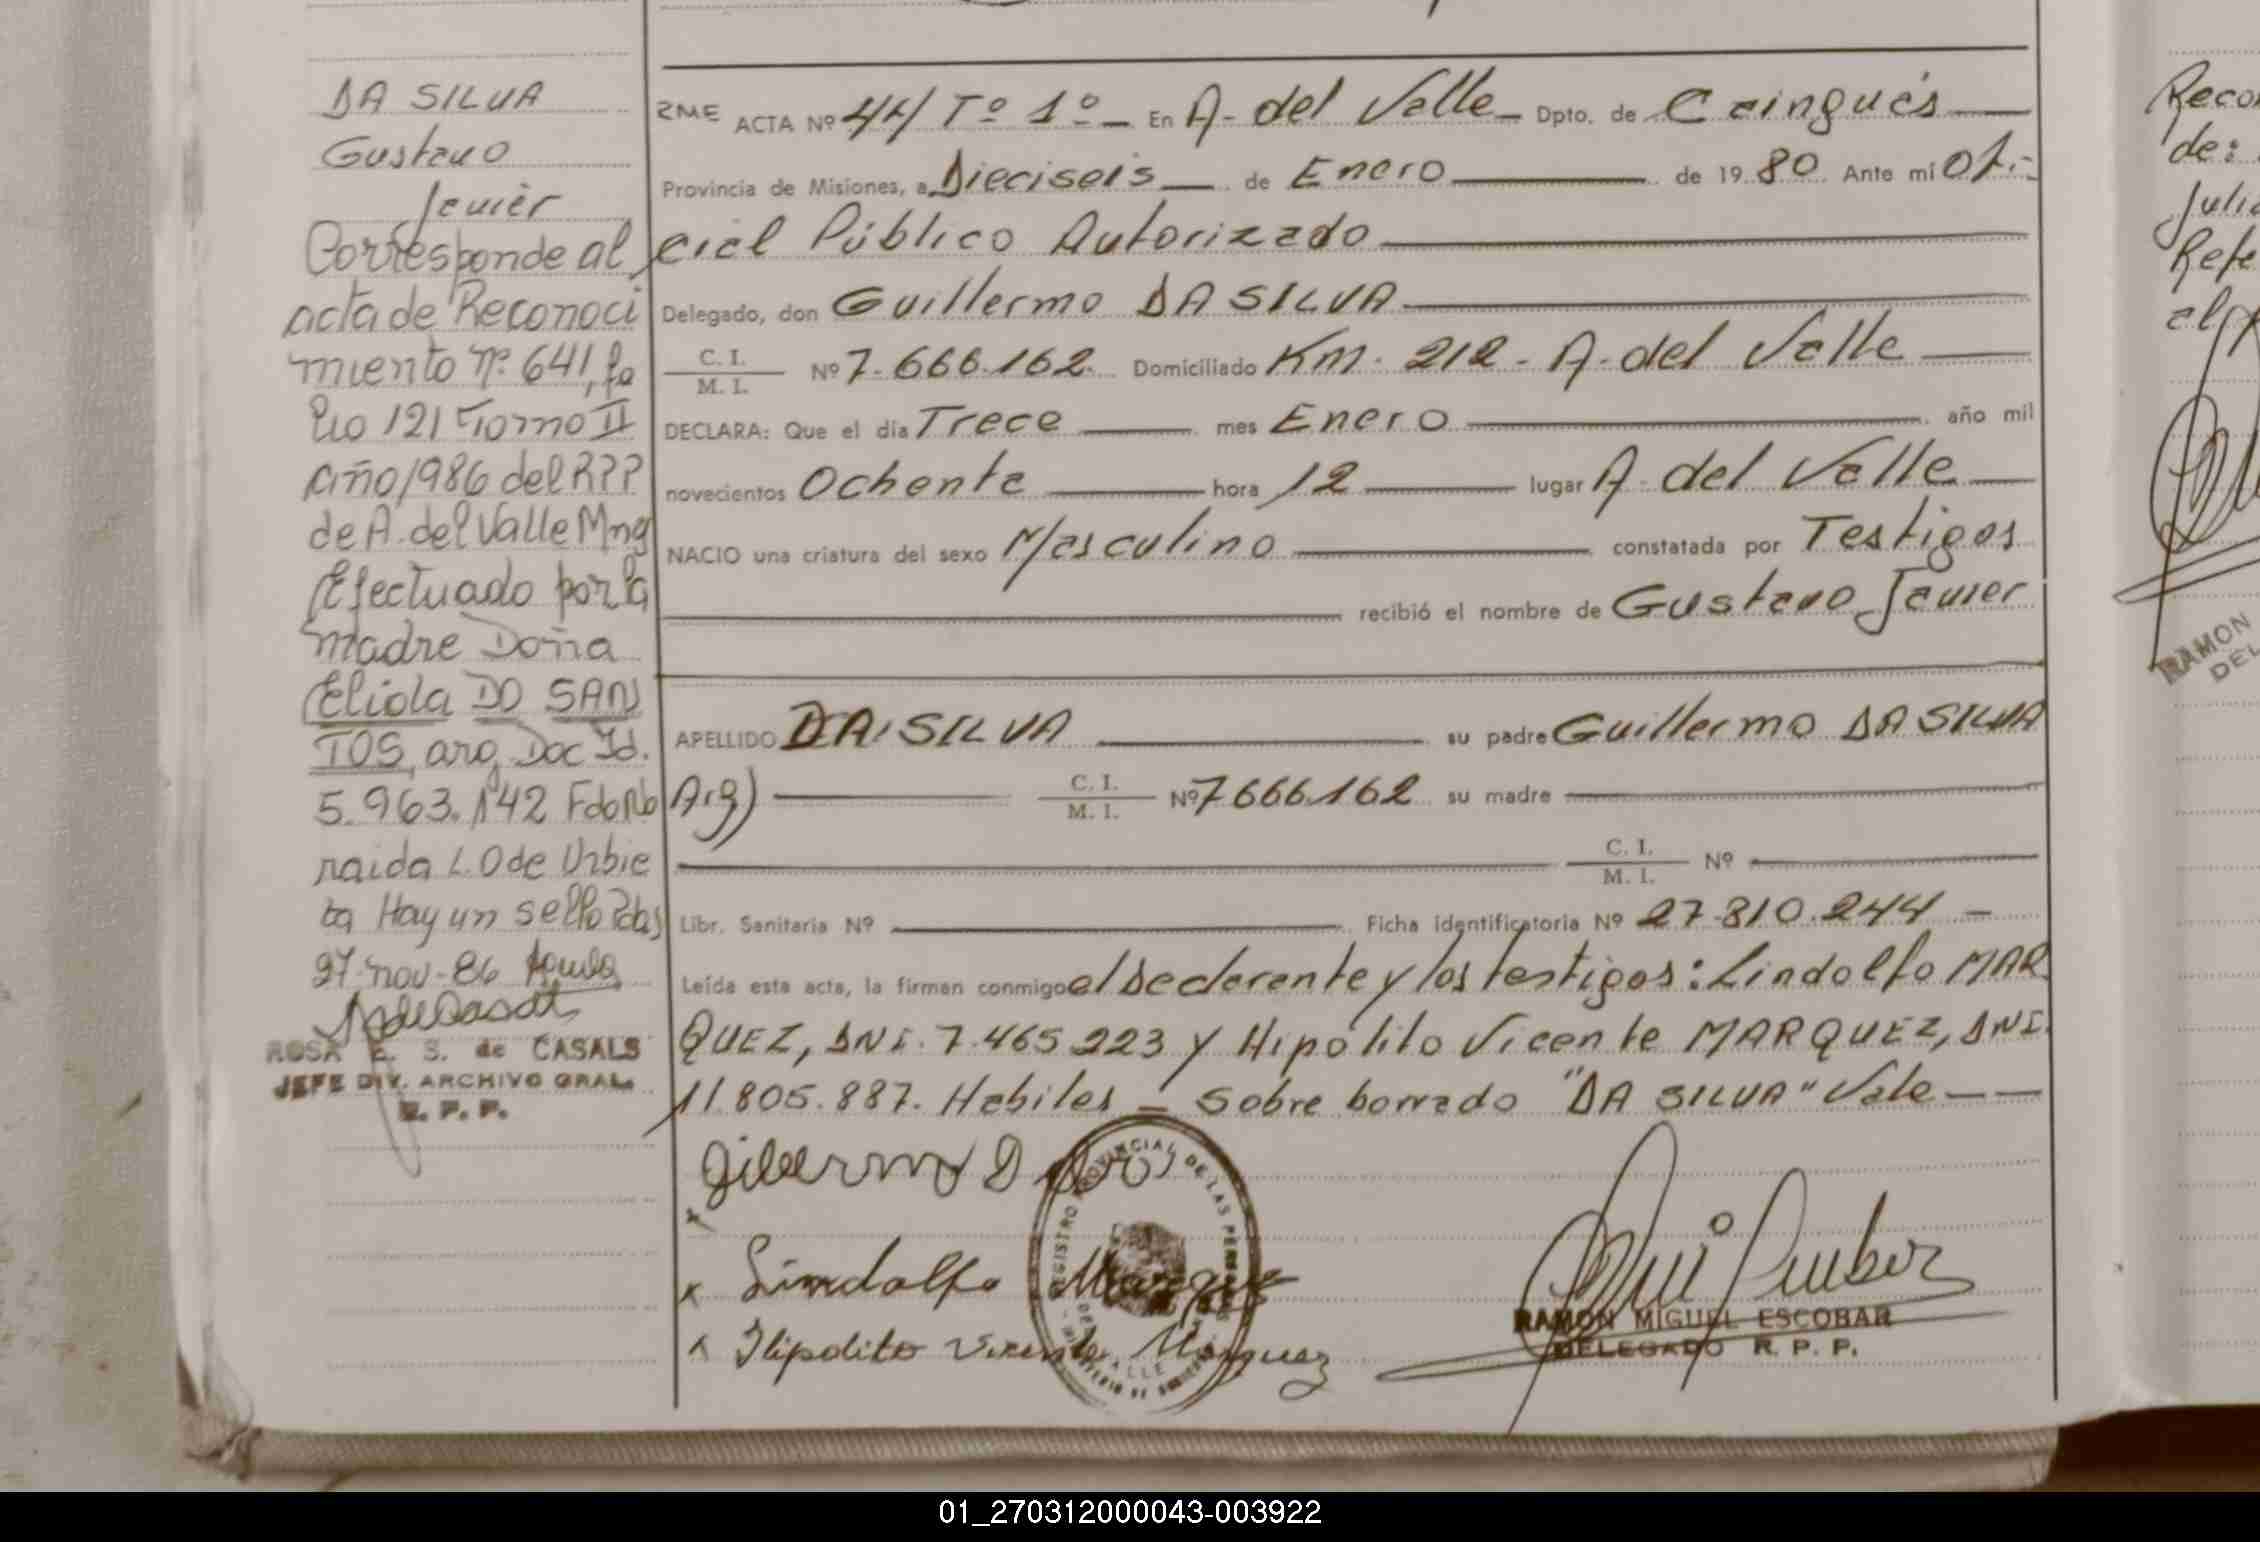 DA SILVA
Gustavo
Javier
Corresponde al
acta de Reconoci
miento nº 641, fo
lio 121 Tomo II
año 1986 del RPP
de A. del Valle Mnes
Efectuado por la
madre Doña
Eliola DO SAN
TOS, arg. Doc Id.
5.963.142 Fdo
raida L. O de Urbie
ta Hay un sello Pdas
27-nov-86
ROSA E. S. de CASALS
JEFE DIV. ARCHIVO GRAL.
R. P. P.
ACTA Nº 44 / Tº 1º En A. del Valle Dpto. de Cainguás
Provincia de Misiones, a Dieciseis de Enero de 19 80 Ante mí Ofi-
cial Público Autorizado
Delegado, don Guillermo DA SILVA
C. I.
M. I. Nº 7.666.162 Domiciliado Km. 212 - A. del Valle
DECLARA: Que el día Trece mes Enero año mil
novecientos Ochenta hora 12 lugar A. del Valle
NACIO una criatura del sexo Masculino constatada por Testigos
recibió el nombre de Gustavo Javier
APELLIDO DA SILVA su padre Guillermo DA SILVA
Arg) C. I. M. I. Nº 7.666.162 su madre
C. I. M. I. Nº
Libr. Sanitaria Nº Ficha identificatoria Nº 27.810.244 -
Leída esta acta, la firman conmigo el declarante y los testigos: Lindolfo MAR
QUEZ, DNI. 7.465.223 y Hipólito Vicente MARQUEZ, DNI.
11.805.887. Habiles - Sobre borrado "DA SILVA" Vale
x Lindolfo Marquez
x Hipolito Vicente Marquez
REGISTRO PROVINCIAL DE LAS PERSONAS
RAMON MIGUEL ESCOBAR
DELEGADO R. P. P.
de:
RAMON
DEL
01_270312000043-003922